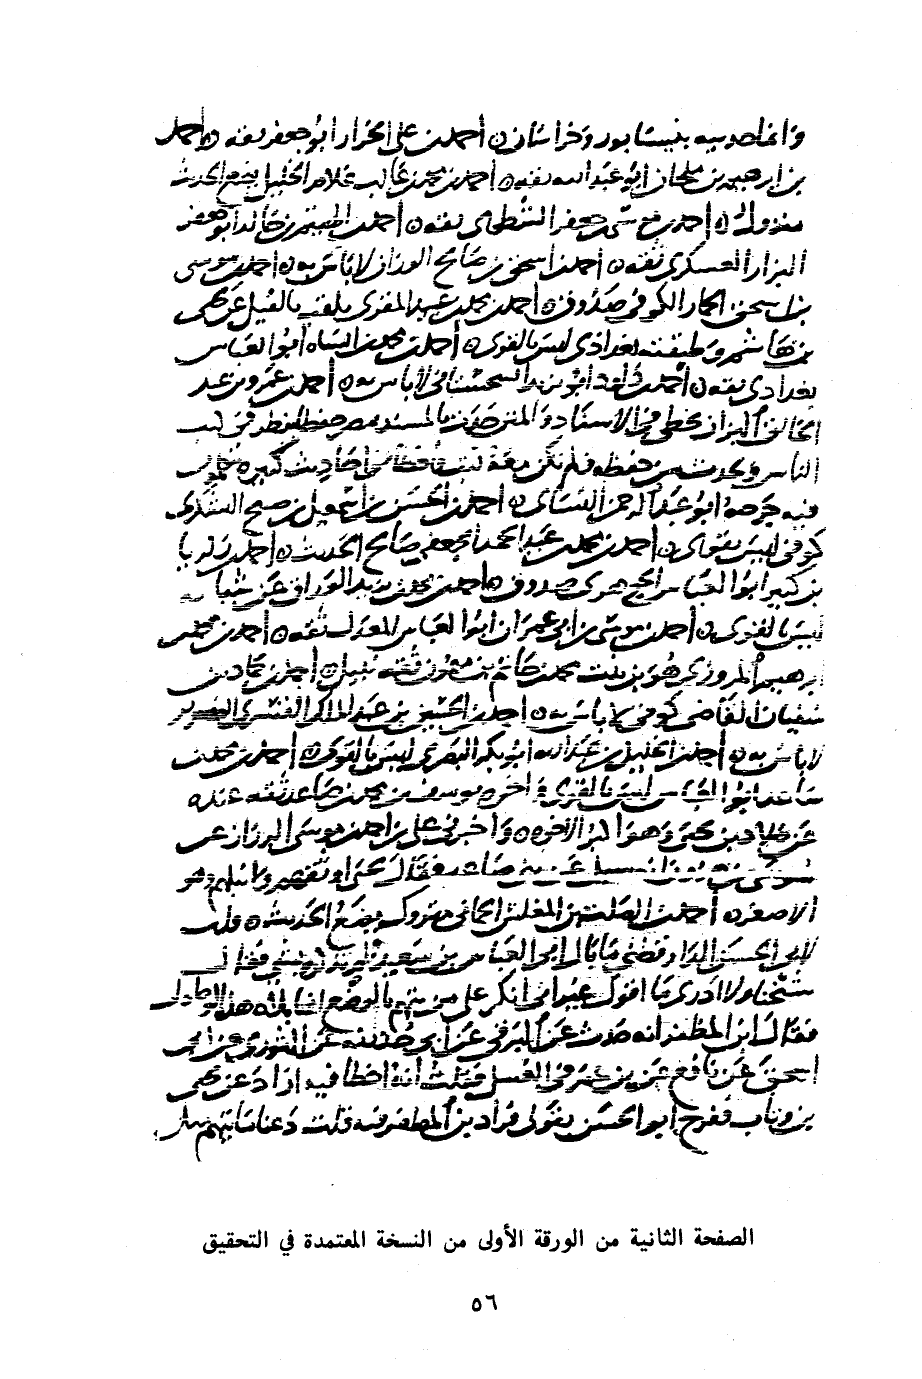 وانما حديثه بنيسابور وخراسان ه أحمد بن علي الخزاز أبو جعفر ثقه ه أحمد
بن ابرهيم بن ملحان أبو عبد الله ثقه ه أحمد بن محمد بن غالب غلام الخليل يضع الحديث
متروك ه أحمد بن موسى ثقه ه أحمد بن الهيثم بن خالد أبو جعفر
البزاز العسكري ثقه ه أحمد بن اسحق بن صالح الوزان لا باس به ه أحمد بن موسى
بن اسحق الحمار الكوفي صدوق ه أحمد بن محمد بن عبد المقرئ يلقب بالفيل عن يحيى
بن هاشم وطبقته بغدادي ليس بالقوي ه أحمد بن محمد بن الشاه أبو العباس
بغدادي ثقه ه أحمد بن داود أبو يزيد السجستاني لا باس به ه أحمد بن عمرو بن عبد
الخالق البزاز يخطي في الاسناد والمتن حدث بالمسند بمصر حفظا ينظر في كتب
الناس ويحدث من حفظه فلم تكن معه كتب فاخطا في احاديث كثيره
فيه جرحه أبو عبد الرحمن النسائي ه أحمد بن الحسن بن اسمعيل بن صبيح اليشكري
كوفي ليس بقوي ه أحمد بن محمد بن عبد الحميد الجعفي صالح الحديث ه أحمد بن زكريا
بن كثير أبو العباس الجوهري صدوق ه أحمد بن محمد بن يزيد الوراق عن شبابه
ليس بالقوي ه أحمد بن موسى بن ابي عمران أبو العباس المعدل ثقه ه أحمد بن محمد بن
ابرهيم المروزي هو بن بنت محمد بن حاتم بن ميمون ثقه نبيل ه أحمد بن حماد بن
سفيان القاضي كوفي لا باس به ه أحمد بن الحسين بن عبد الملك القشيري الضرير
لا باس به ه أحمد بن الخليل بن عبد الله أبو بكر البصري ليس بالقوي ه أحمد بن محمد بن
صاعد أبو العباس ليس بالقوي واخوه يوسف بن محمد بن صاعد ثقه عنده
عن خلاد بن يحيى وهو اكبر الاخوه ه واخبرني علي بن احمد بن موسى الرزاز عن
بن صاعد فقال يحيى وهو
الاصغر ه أحمد بن الصلت بن المغلس الحماني متروك يضع الحديث ه قلت
لابي الحسن الدارقطني قال أبو العباس بن سعيد فقال
شيخنا ولا ادري ما اقول غير اني انكر على من يتهم بالوضع
فقال ابن المظفر انه حدث عن البرتي عن أبي حذيفه عن الثوري عن ابي
اسحق عن نافع عن بن عمر في الغسل فقلت انه اخطا فيه اراد عن يحيى
بن وثاب ففرح أبو الحسن بقولي فزاد بن المظفر فيه قلت دعنا
الصفحة الثانية من الورقة الأولى من النسخة المعتمدة في التحقيق
٥٦